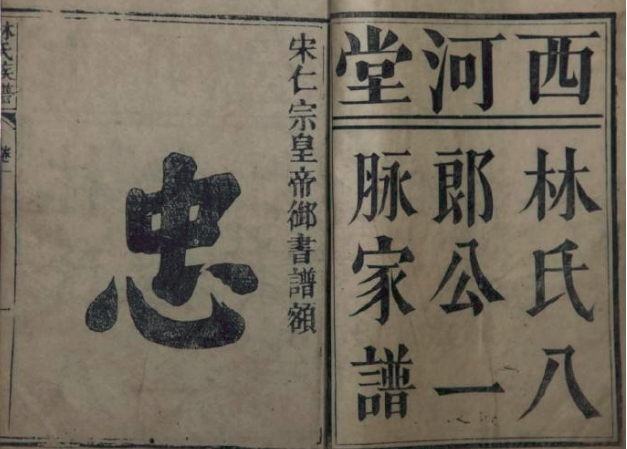 西河堂
林氏八
郎公一
脉家譜
宋仁宗皇帝御書譜額
忠
林氏族譜
卷一